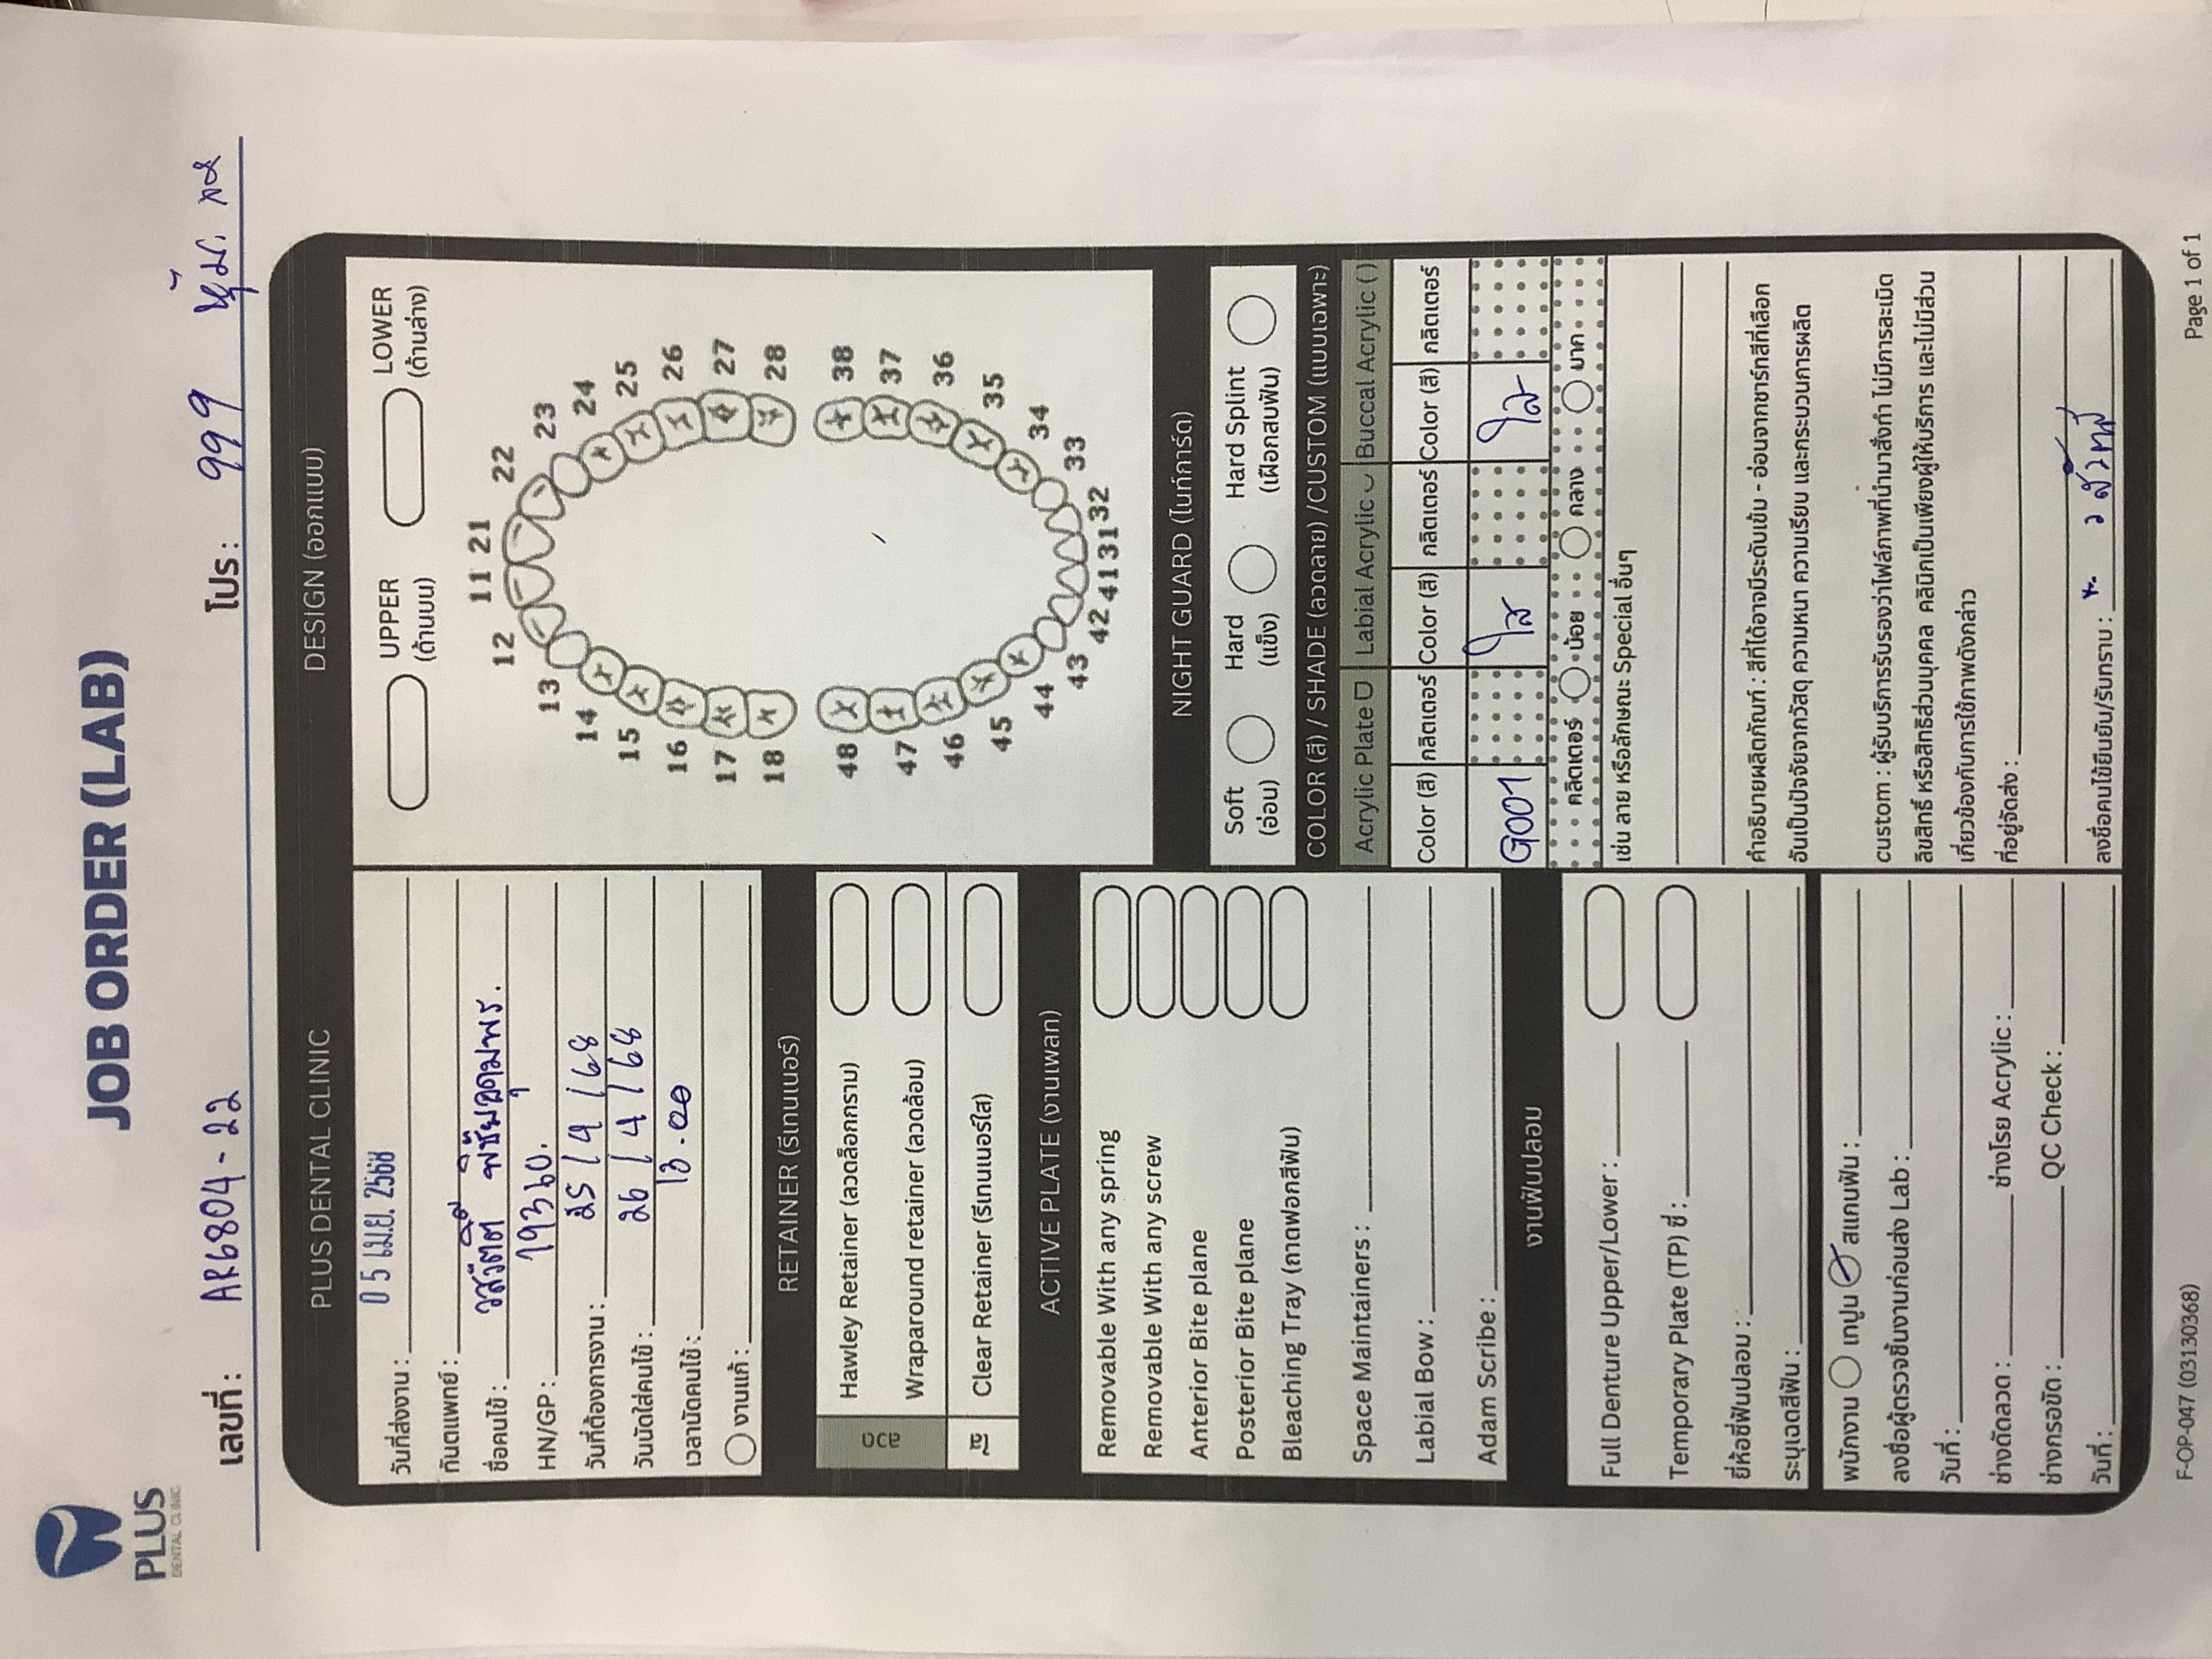 PLUS
DENTAL CLINIC
JOB ORDER (LAB)
เลขที่ : AR6804-22
โปร : 999 หุ้ม.
PLUS DENTAL CLINIC
วันที่ส่งงาน : 05 เม.ย. 2568
ทันตแพทย์ :
ชื่อคนไข้ : วสวัตติ์ พิชัยอุดมพร.
HN/GP : 19360.
วันที่ต้องการงาน : 25/4/68
วันนัดใส่คนไข้ : 26/4/68
เวลานัดคนไข้ : 13.00
งานแก้ :
RETAINER (รีเทนเนอร์)
ลวด
Hawley Retainer (ลวดล็อกกราม)
Wraparound retainer (ลวดล้อม)
ใส
Clear Retainer (รีเทนเนอร์ใส)
ACTIVE PLATE (งานเพลท)
Removable With any spring
Removable With any screw
Anterior Bite plane
Posterior Bite plane
Bleaching Tray (ถาดฟอกสีฟัน)
Space Maintainers :
Labial Bow :
Adam Scribe :
งานฟันปลอม
Full Denture Upper/Lower :
Temporary Plate (TP) ซี่ :
ยี่ห้อซี่ฟันปลอม :
ระบุเฉดสีฟัน :
พนักงาน เทปูน สแกนฟัน :
ลงชื่อผู้ตรวจชิ้นงานก่อนส่ง Lab :
วันที่ :
ช่างดัดลวด : ช่างโรย Acrylic :
ช่างกรอขัด : QC Check :
วันที่ :
DESIGN (ออกแบบ)
UPPER LOWER
(ด้านบน) (ด้านล่าง)
11 21
12 22
13 23
14 24
15 25
16 26
17 27
18 28
48 38
47 37
46 36
45 35
44 34
43 33
42 41 31 32
NIGHT GUARD (ไนท์การ์ด)
Soft Hard Hard Splint
(อ่อน) (แข็ง) (เฝือกสบฟัน)
COLOR (สี) / SHADE (ลวดลาย) /CUSTOM (แบบเฉพาะ)
Acrylic Plate Labial Acrylic Buccal Acrylic ( )
Color (สี) กลิตเตอร์ Color (สี) กลิตเตอร์ Color (สี) กลิตเตอร์
G001 ใส ใส
กลิตเตอร์ น้อย กลาง มาก
เช่น ลาย หรือลักษณะ Special อื่นๆ
คำอธิบายผลิตภัณฑ์ : สีที่ได้อาจมีระดับเข้ม - อ่อนจากชาร์ทสีที่เลือก
อันเป็นปัจจัยจากวัสดุ ความหนา ความเรียบ และกระบวนการผลิต
custom : ผู้รับบริการรับรองว่าไฟล์ภาพที่นำมาสั่งทำ ไม่มีการละเมิด
ลิขสิทธิ์ หรือสิทธิส่วนบุคคล คลินิกเป็นเพียงผู้ให้บริการ และไม่มีส่วน
เกี่ยวข้องกับการใช้ภาพดังกล่าว
ที่อยู่จัดส่ง :
ลงชื่อคนไข้ยืนยัน/รับทราบ :
F-OP-047 (03130368)
Page 1 of 1